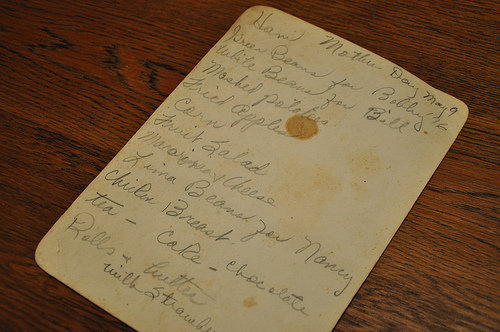 Ham Mother Day May 9
Green Beans for Bobby &
White Beans for Bill.
Mashed Potatoes
Fried Apples
Corn
Fruit Salad
Macaroni & Cheese
Lima Beans for Nancy
Chicken Breast
tea - Cake - Chocolate
Rolls & butter
with